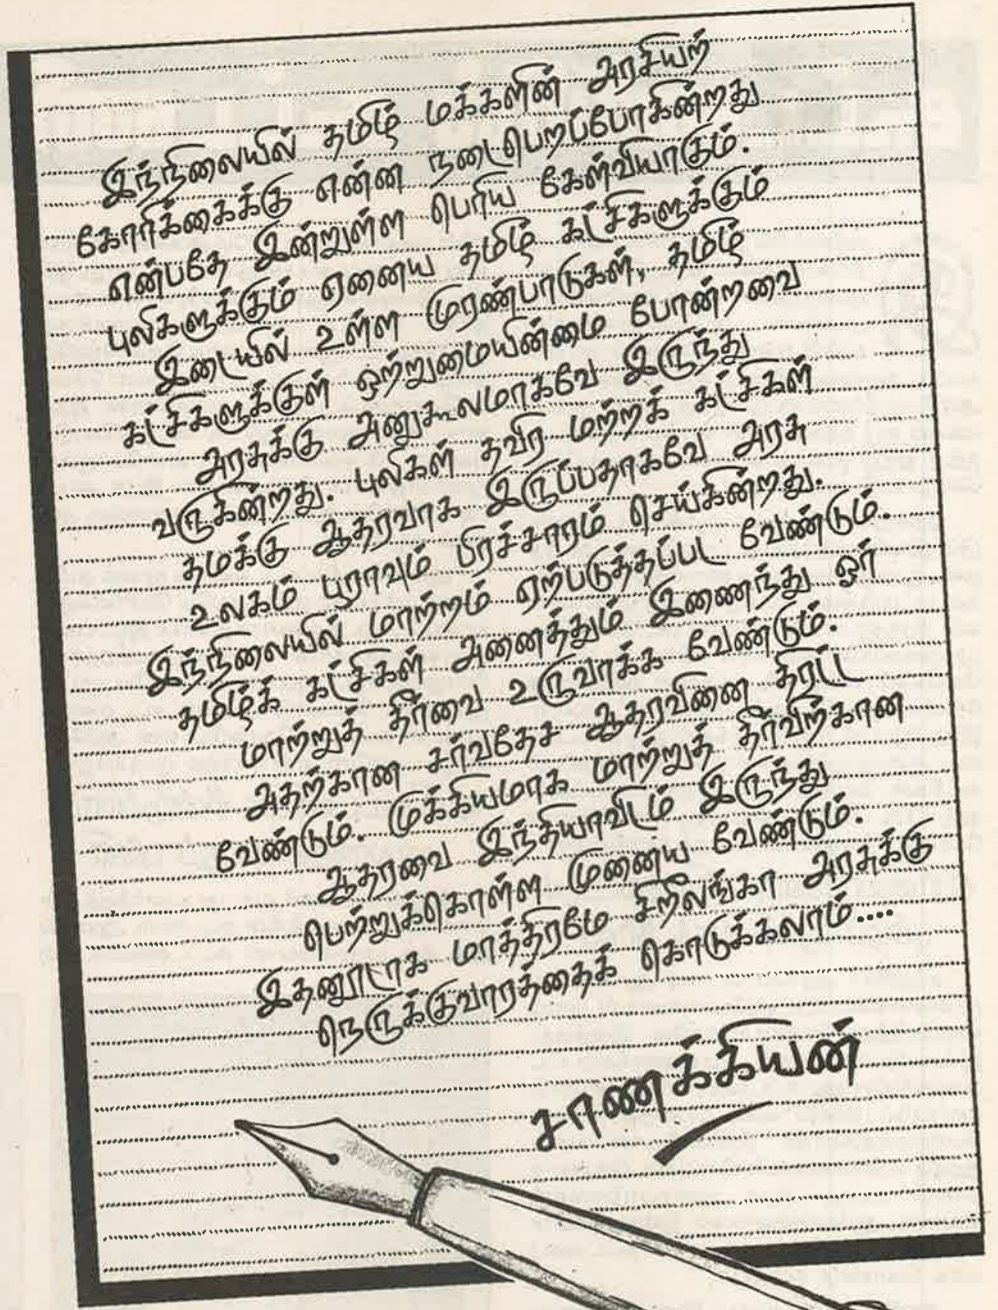 இந்நிலையில் தமிழ் மக்களின் அரசியற்
கோரிக்கைக்கு என்ன நடைபெறப்போகின்றது
என்பதே இன்றுள்ள பெரிய கேள்வியாகும்.
புலிகளுக்கும் ஏனைய தமிழ் கட்சிகளுக்கும்
இடையில் உள்ள முரண்பாடுகள், தமிழ்
கட்சிகளுக்குள் ஒற்றுமையின்மை போன்றவை
அரசுக்கு அனுகூலமாகவே இருந்து
வருகின்றது. புலிகள் தவிர மற்றக் கட்சிகள்
தமக்கு ஆதரவாக இருப்பதாகவே அரசு
உலகம் பூராவும் பிரச்சாரம் செய்கின்றது.
இந்நிலையில் மாற்றம் ஏற்படுத்தப்பட வேண்டும்.
தமிழ்க் கட்சிகள் அனைத்தும் இணைந்து ஓர்
மாற்றுத் தீர்வை உருவாக்க வேண்டும்.
அதற்கான சர்வதேச ஆதரவினை திரட்ட
வேண்டும். முக்கியமாக மாற்றுத் தீர்விற்கான
ஆதரவை இந்தியாவிடம் இருந்து
பெற்றுக்கொள்ள முனைய வேண்டும்.
இதனூடாக மாத்திரமே சிறீலங்கா அரசுக்கு
நெருக்குவாரத்தைக் கொடுக்கலாம்....
சாணக்கியன்